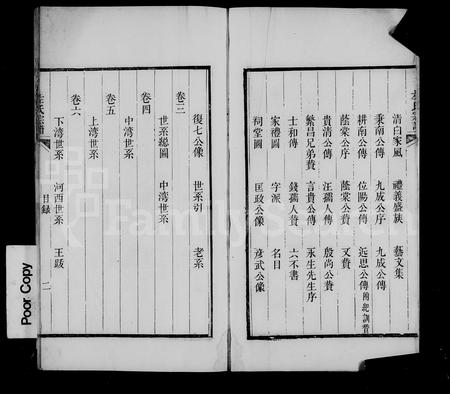 清白家風 禮義盛族 藝文集
秉南公傳 九成公序 九成公傳
耕南公傳 位陽公傳 远思公傳 附妣訓贊
蔭棠公序 蔭棠公贊 又贊
貴清公傳 汪孺人傳 殷尚公贊
繁昌兄弟贊 言貴公傳 永生先生序
士和傳 錢孺人贊 六不書
家禮圖 字派 名目
祠堂圖 匡政公像 彦武公像
復七公像 世系引 老系
卷三
世系總圖 中湾世系
卷四
中湾世系
卷五
上湾世系
卷六
下湾世系 河西世系 王跋
目録 二
Poor Copy